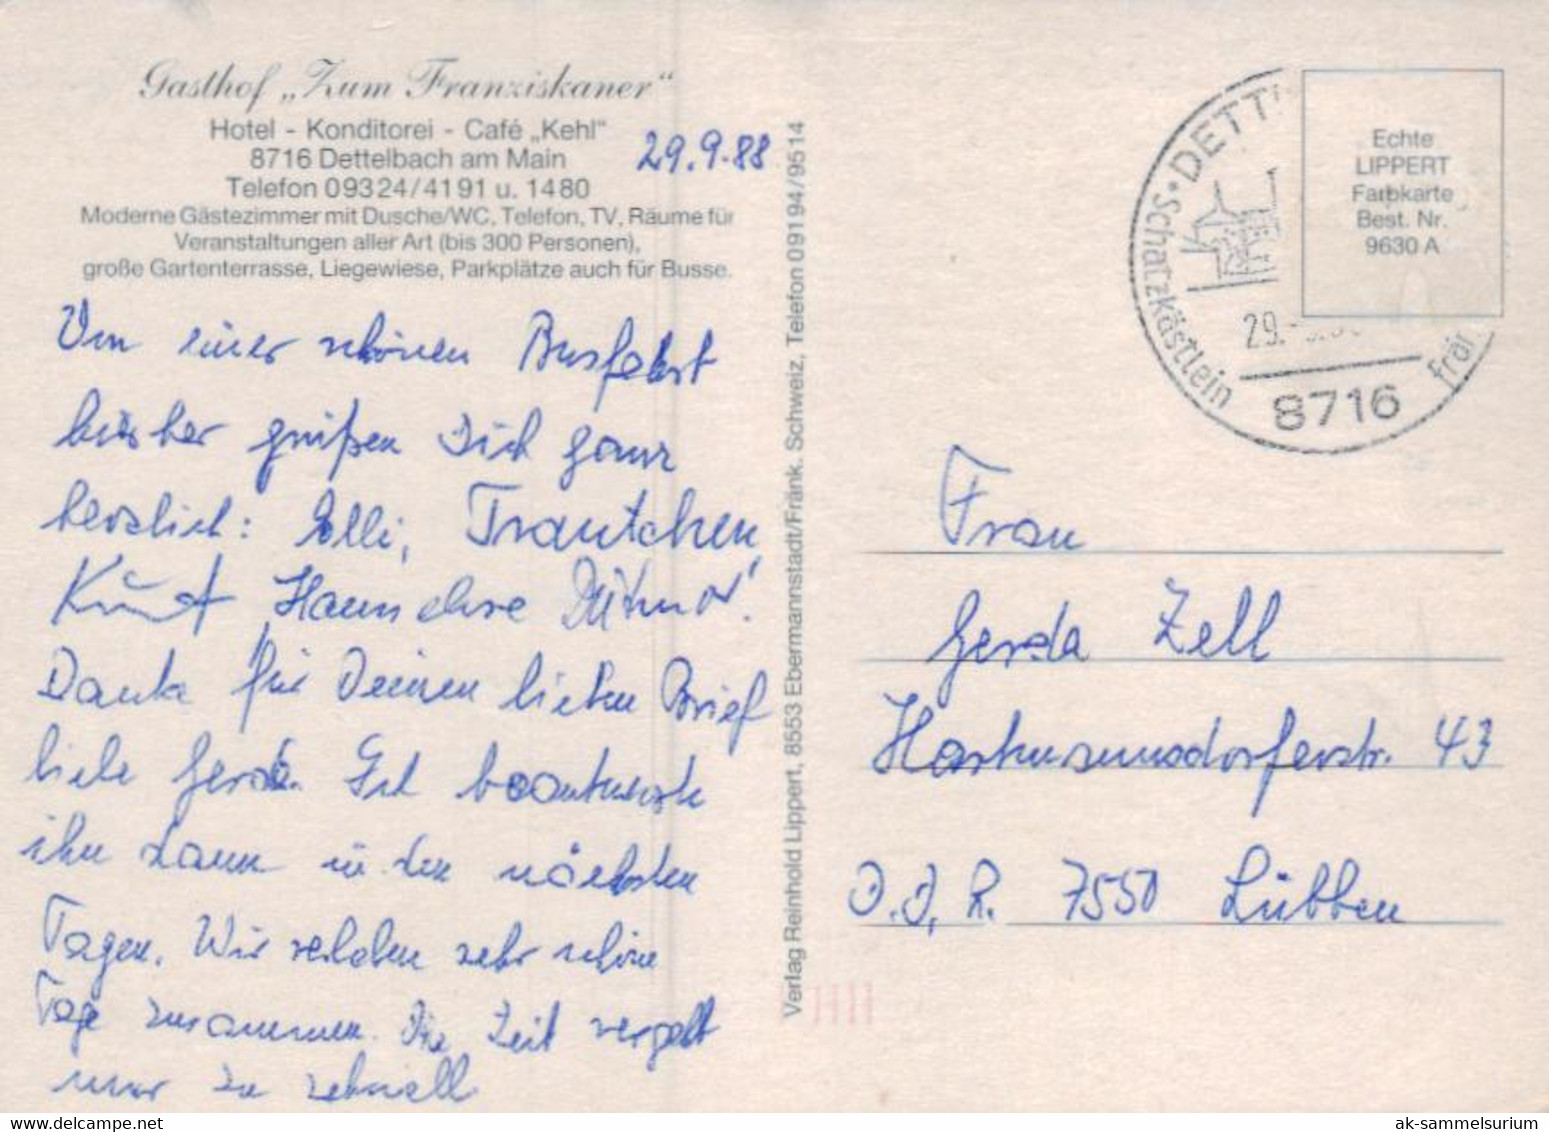 Gasthof „Zum Franziskaner“
Hotel - Konditorei - Café „Kehl“
8716 Dettelbach am Main
Telefon 09324/4191 u. 1480
Moderne Gästezimmer mit Dusche/WC, Telefon, TV, Räume für
Veranstaltungen aller Art (bis 300 Personen),
große Gartenterrasse, Liegewiese, Parkplätze auch für Busse.
29.9.88
Von einer schönen Busfahrt
hierher grüßen Dich ganz
herzlich: Elli, Trautchen,
Kurt, Hannelore
Danke für Deinen lieben Brief
liebe Gerda. Ich beantworte
ihn dann in den nächsten
Tagen. Wir verleben sehr schöne
Tage zusammen. Die Zeit vergeht
nur zu schnell
Verlag Reinhold Lippert, 8553 Ebermannstadt/Fränk. Schweiz, Telefon 09194/9514
DETT
Schatzkästlein
29.
8716
frän
Echte
LIPPERT
Farbkarte
Best. Nr.
9630 A
Frau
Gerda Zell
43
D.D.R. 7550 Lübben
ak-sammelsurium@delcampe